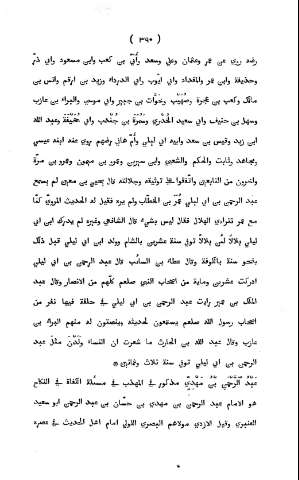 ( ٣٩٠ )
رضه روى عن عمر وعثمان وعلي وسعد وأُبَيّ بن كعب وابن مسعود وابي ذرّ
وحذيفة وابن عمر والمقداد وابي ايوب وابي الدرداء وزيد بن ارقم وانس بن
مالك وكعب بن عجرة وصُهَيْب وخَوّات بن جبير وابي موسى والبراء بن عازب
وسهل بن حنيف وابي سعيد الخُدْري وسَمُرة بن جُنْدب وابي جُحَيْفة وعبد الله
ابن زيد وقيس بن سعد وابيه ابي ليلى وأُمّ هانئ رضهم روى عنه ابنه عيسى
ومجاهد وثابت والحكم والشعبي وابن سيرين وعمرو بن ميمون وعمرو بن مرّة
واخرون من التابعين واتّفقوا على توثيقه وجلالته قال يحيى بن معين لم يسمع
عبد الرحمن بن ابي ليلى عُمَر بن الخطّاب ولم يره فقيل له الحديث المروى كنّا
مع عمر نتراءى الهلال فقال ليس بشىء قال الشافعي وغيره لم يدرك ابن ابي
ليلى بلالا لانّ بلالاً توفى سنة عشرين بالشام وولد ابن ابي ليلى قبل ذلك
بنحو سنة بالكوفة وقال عطاء بن السائب قال عبد الرحمن بن ابي ليلى
ادركت عشرين وماية من اصحاب النبي صلعم كلّهم من الانصار وقال عبد
الملك بن عمير رايت عبد الرحمن بن ابي ليلى في حلقة فيها نفر من
اصحاب رسول الله صلعم يستمعون لحديثه وينصتون له منهم البراء بن
عازب وقال عبد الله بن الحارث ما شعرت ان النساء وَلَدْنَ مثل عبد
الرحمن بن ابي ليلى توفى سنة ثلاث وثمانين *
عَبْدُ الرَّحْمٰنِ بْنُ مَهْدِيّ مذكور في المهذّب في مسئلة اللغاة في النكاح
هو الامام عبد الرحمن بن مهدي بن حسّان بن عبد الرحمن ابو سعيد
العنبري وقيل الازدي مولاهم البصري اللؤلؤي امام اهل الحديث في عصره